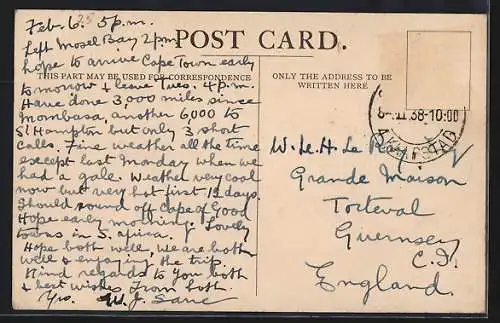 Feb. 6. 5 p.m.
Left Mosel Bay 2 pm
hope to arrive Cape Town early
to morrow & leave Tues. 4 p.m.
Have done 3,000 miles since
Mombasa, another 6,000 to
S'Hampton but only 3 short
calls. Fine weather all the time
except last Monday when we
had a gale. Weather very cool
now but very hot first 12 days.
Should round off Cape of Good
Hope early morning. Lovely
towns in S. Africa.
Hope both well, we are both
well & enjoying the trip.
Kind regards to you both
& best wishes from both.
Yrs. W. J.
POST CARD.
THIS PART MAY BE USED FOR CORRESPONDENCE
ONLY THE ADDRESS TO BE
WRITTEN HERE
38-10:00
W. Le H. Le
Grande Maison
Torteval
Guernsey
C.I.
England.